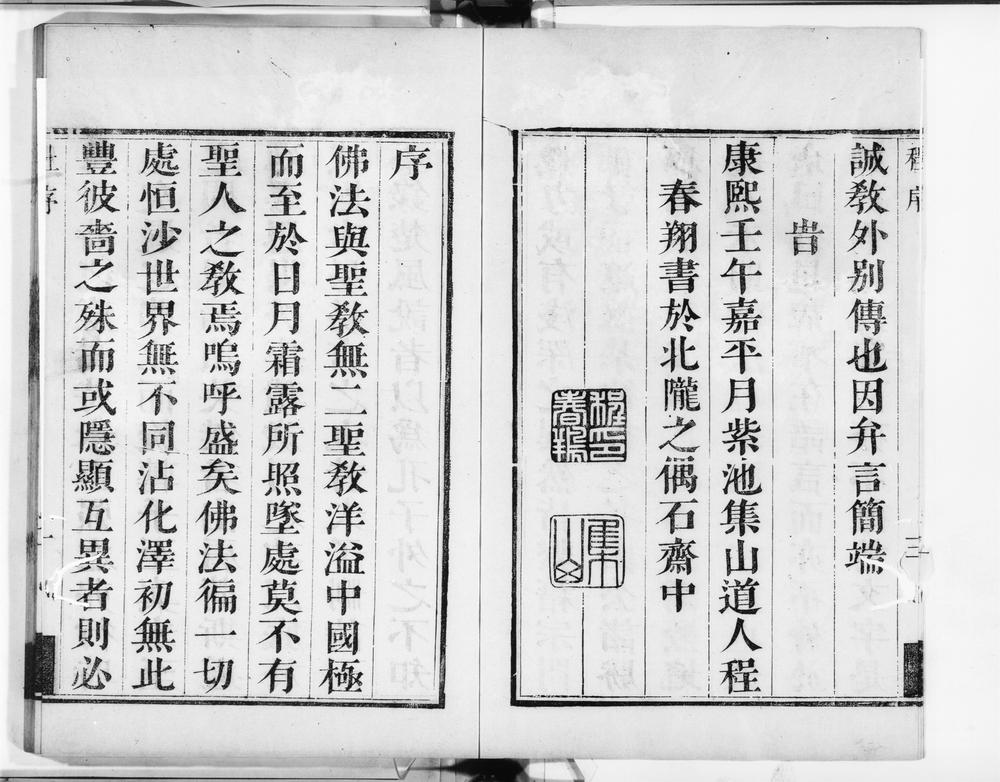 誠教外別傳也因弁言簡端
旹
康熙壬午嘉平月紫池集山道人程
春翔書於北隴之偶石齋中
程印
春翔
集
山
序
佛法與聖教無二聖教洋溢中國極
而至於日月霜露所照墜處莫不有
聖人之敎焉嗚呼盛矣佛法徧一切
處恒沙世界無不同沾化澤初無此
豐彼嗇之殊而或隱顯互異者則必